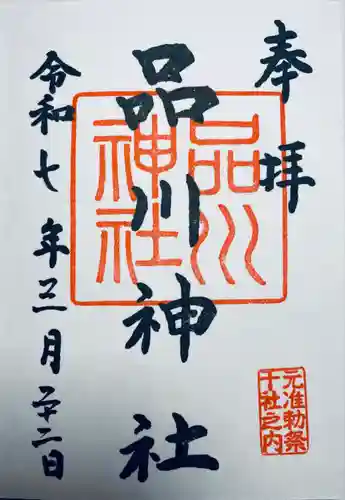 奉拝
品川神社
令和七年三月廿二日
品川
神社
元准勅祭
十社之内